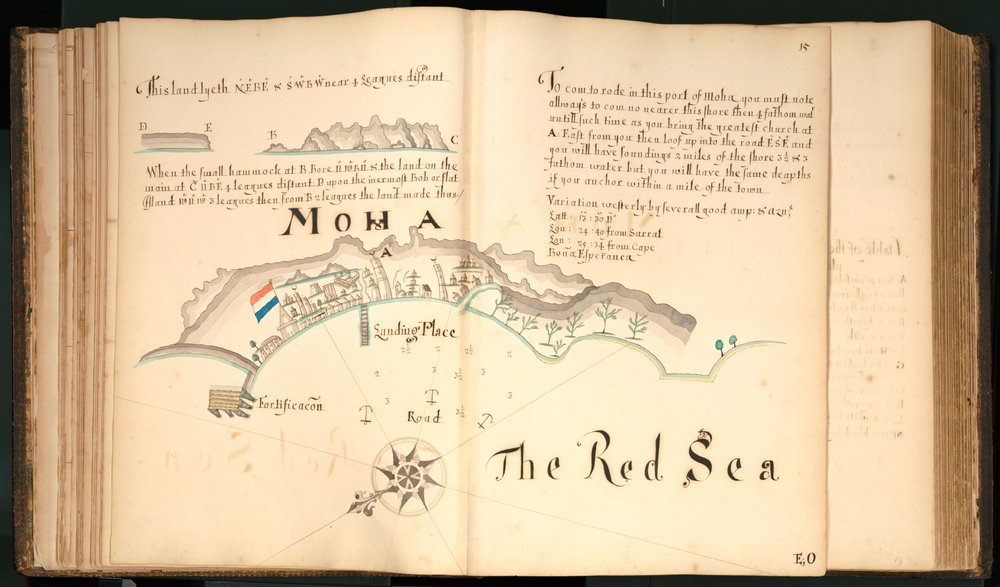 15
This land lyeth N:E:B:E & S:W:B:W near 4 Leagues distant
D E B C
When the small hammock at B Bore N:W:B:N & the land on the
main at C N:B:E 4 leagues distant. D upon the inermost Bob or flat
Island W:N:W 3 leagues then from B 2 leagues the land made thus/
To com to rode in this port of Moha you must note
allways to com no nearer this shore then 4 fathom wat
untill such time as you bring the greatest church at
A: East from you then loof up into the road E:S:E and
you will have soundings 2 miles of the shore 3½ & 3
fathom water but you will have the same deapths
if you anchor within a mile of the town
Variation westerly by severall good amp: & azn:s
Latt: 13:30 N
Lon: 24:40 from Surrat
Lon: 25:34 from Cape
Bona Esperanca
MOHA
A
Landing Place
2½ 2 2½ 2
2 3 3½ 3
3 3 3½
Fortificacon
Road
The Red Sea
E,O
Table of the